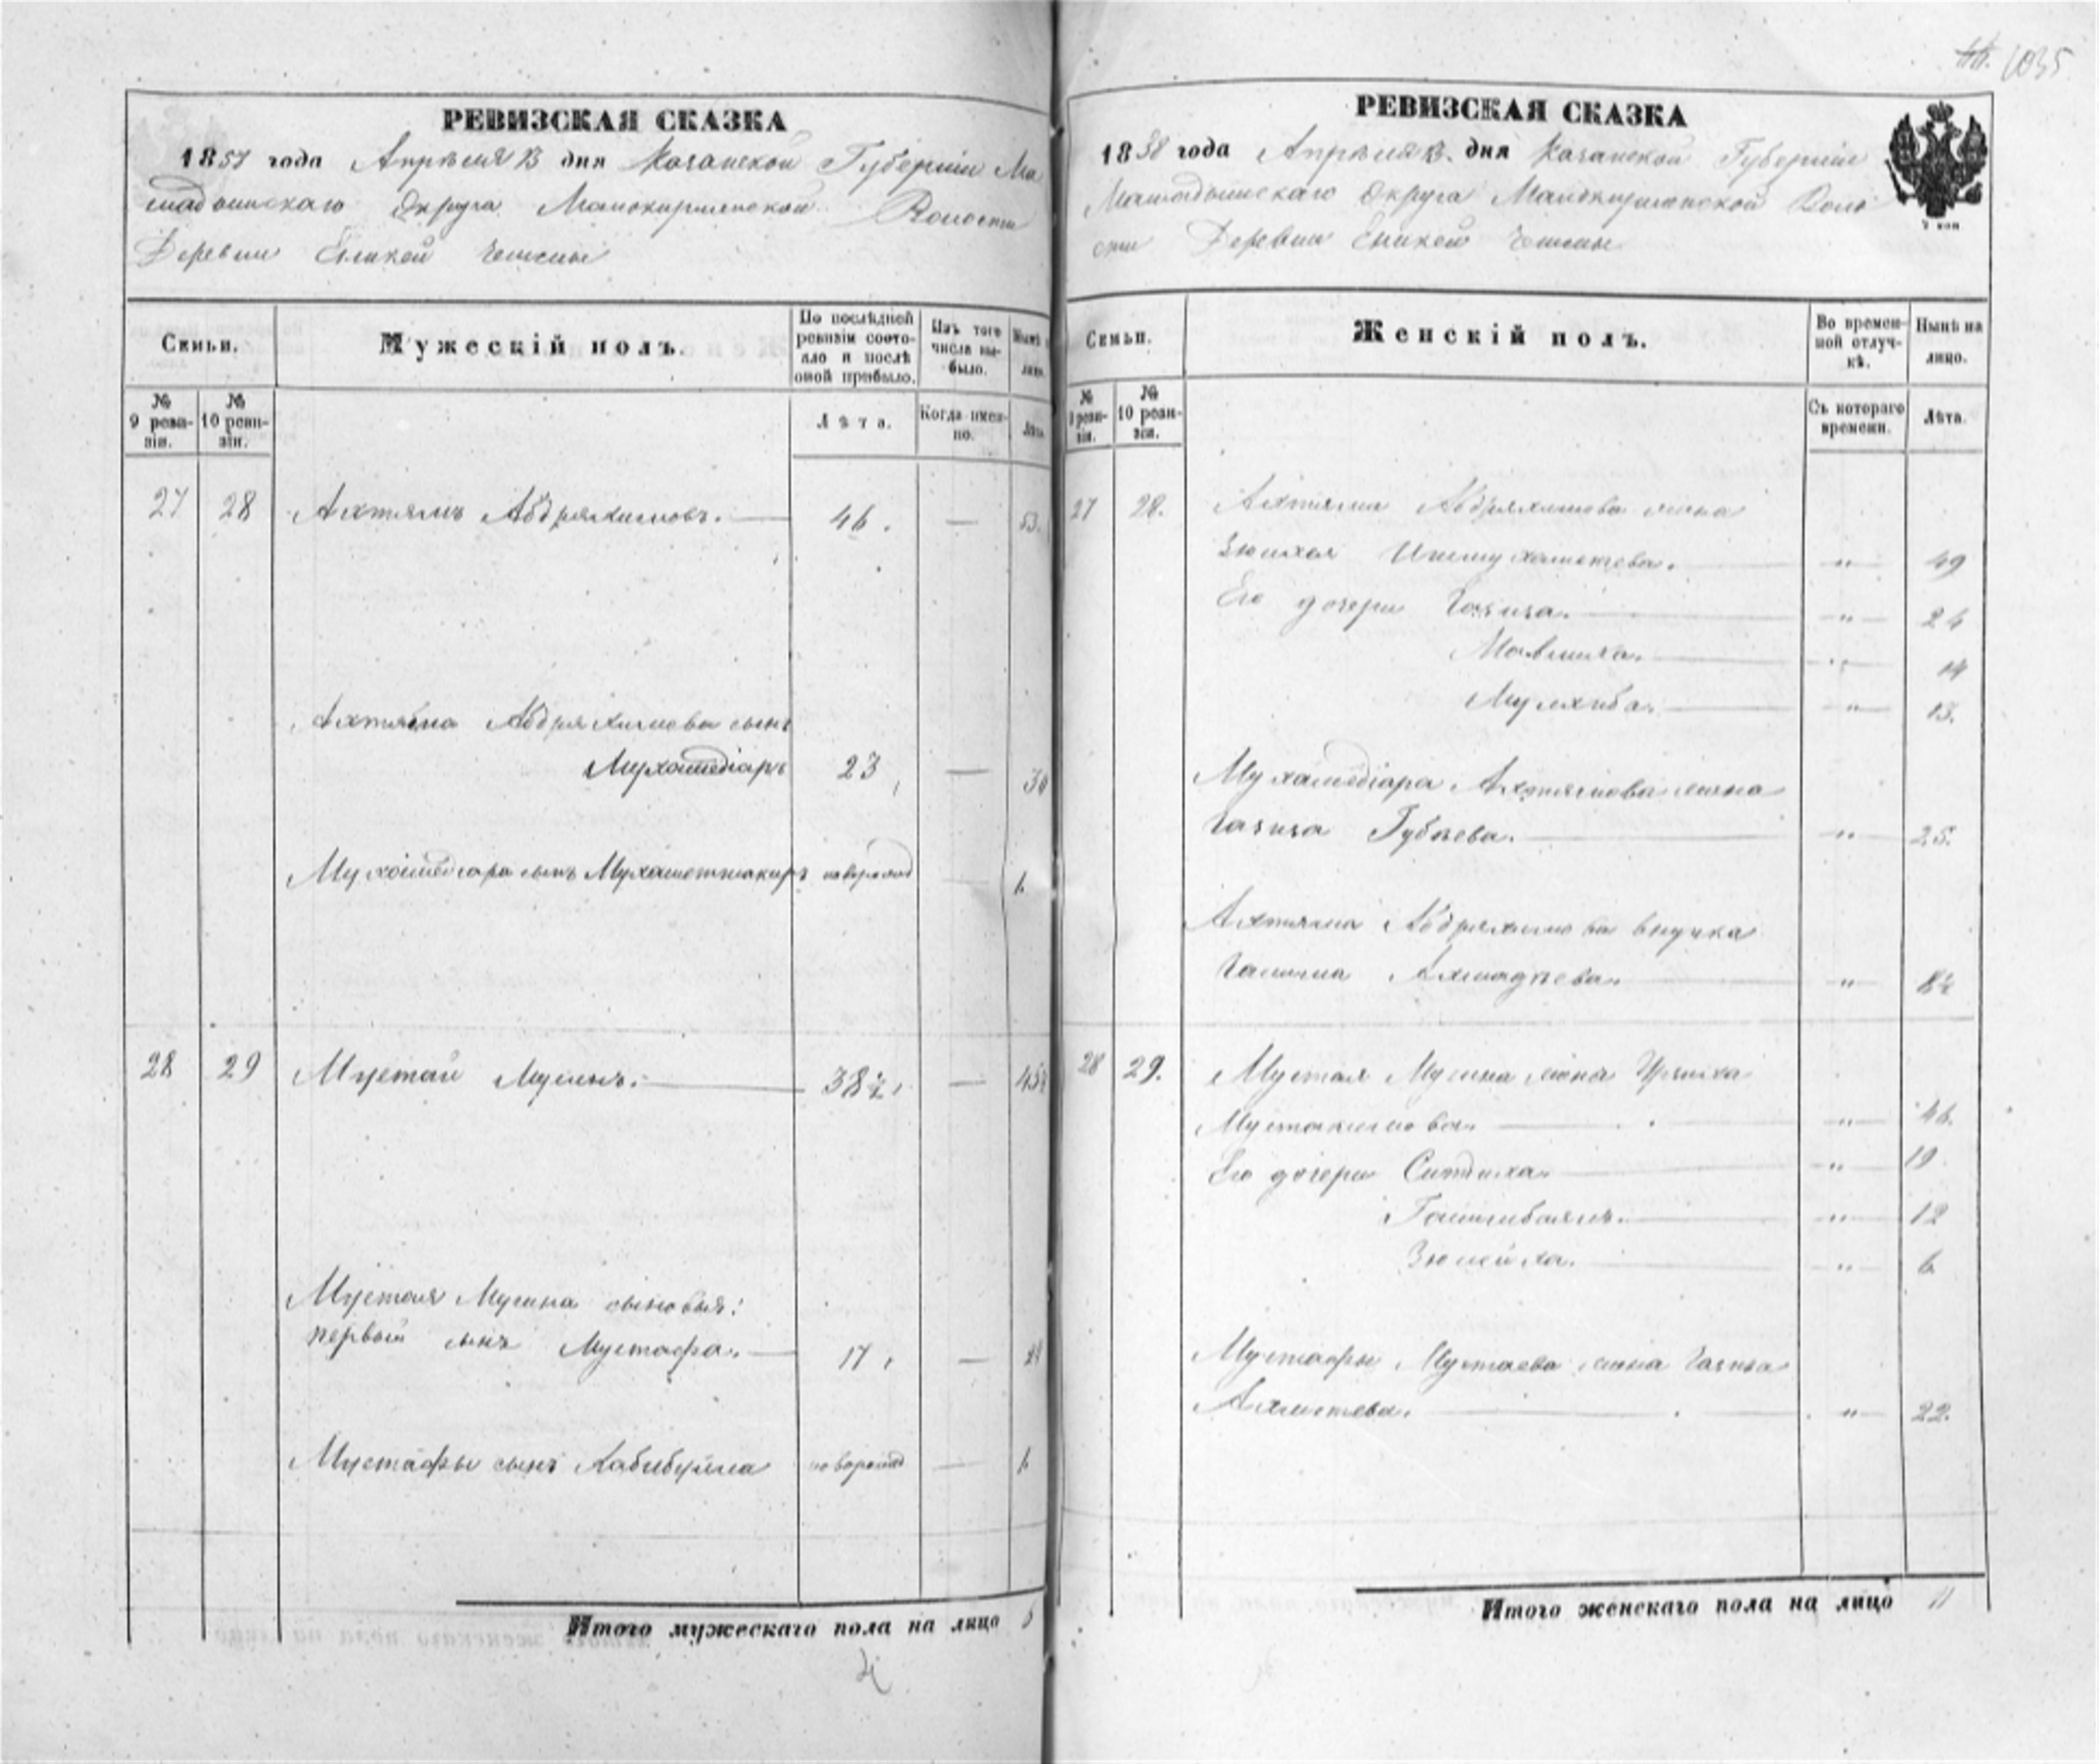 1035
РЕВИЗСКАЯ СКАЗКА
1857 года Апрѣля 13 дня Казанской Губерніи Ма
мадышскаго Округа Малокирменской Волости
Деревни Еникей Чишмы
Семьи.
Мужескій полъ.
По послѣдней ревизіи состояло и послѣ оной прибыло.
Изъ того числа выбыло.
Нынѣ
лицо.
№ 9 ревизіи.
№ 10 ревизіи.
Лѣта.
Когда именно.
Лѣта.
27 28 Ахтямъ Абдряхимовъ. 46. — 53.
Ахтяма Абдряхимова сынъ
Мухамедіаръ 23 — 30
Мухамедіара сынъ Мухаметшакиръ новорожд — 1
28 29 Мустай Мусинъ. 38½ — 45½
Мустая Мусина сыновья:
первый сынъ Мустафа. 17 — 24
Мустафы сынъ Хабибулла новорожд — 1
Итого мужескаго пола на лицо 5
РЕВИЗСКАЯ СКАЗКА
1858 года Апрѣля 13. дня Казанской Губерніи
Мамадышскаго Округа Малокирменской Воло
сти Деревни Еникей Чишмы
Семьи.
Женскій полъ.
Во временной отлучкѣ.
Нынѣ на лицо.
№ 9 ревизіи.
№ 10 ревизіи.
Съ котораго времени.
Лѣта.
27 28. Ахтяма Абдряхимова жена
Зюлхая Ишмухаметева. " 49
Его дочери Газиза. " 24
Мавлиха. " 14
Мулхиба. " 13.
Мухамедіара Ахтямова жена
Газиза Губаева. " 25.
Ахтяма Абдряхимова внучка
Галима Ахмадѣева. " 8½
28 29. Мустая Мусина жена
Мустакимова. " 46.
Его дочери Ситдиха. " 19
" 12
Зюлейха. " 6
Мустафы Мустаева жена Газиза
Ахметева. " 22.
Итого женскаго пола на лицо 11